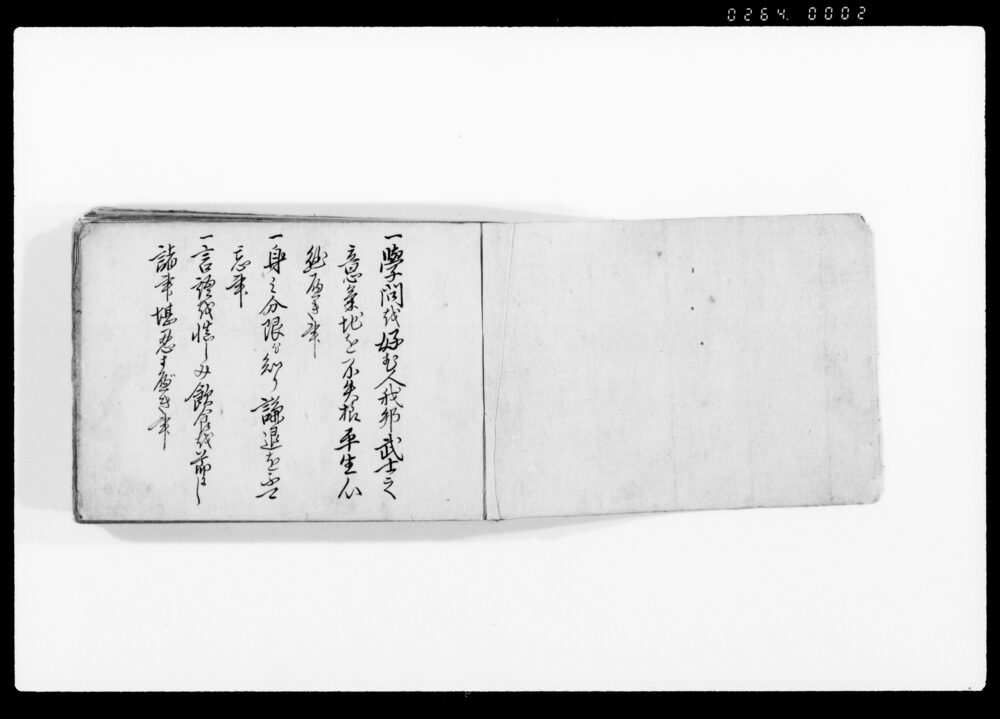 0264. 0002
一學問を好む人我邦武士之
意気地を不失様平生心
懸へき事
一身之分限を知り謙退を不
忘事
一言語を慎しみ飲食を節にし
諸事堪忍すへき事